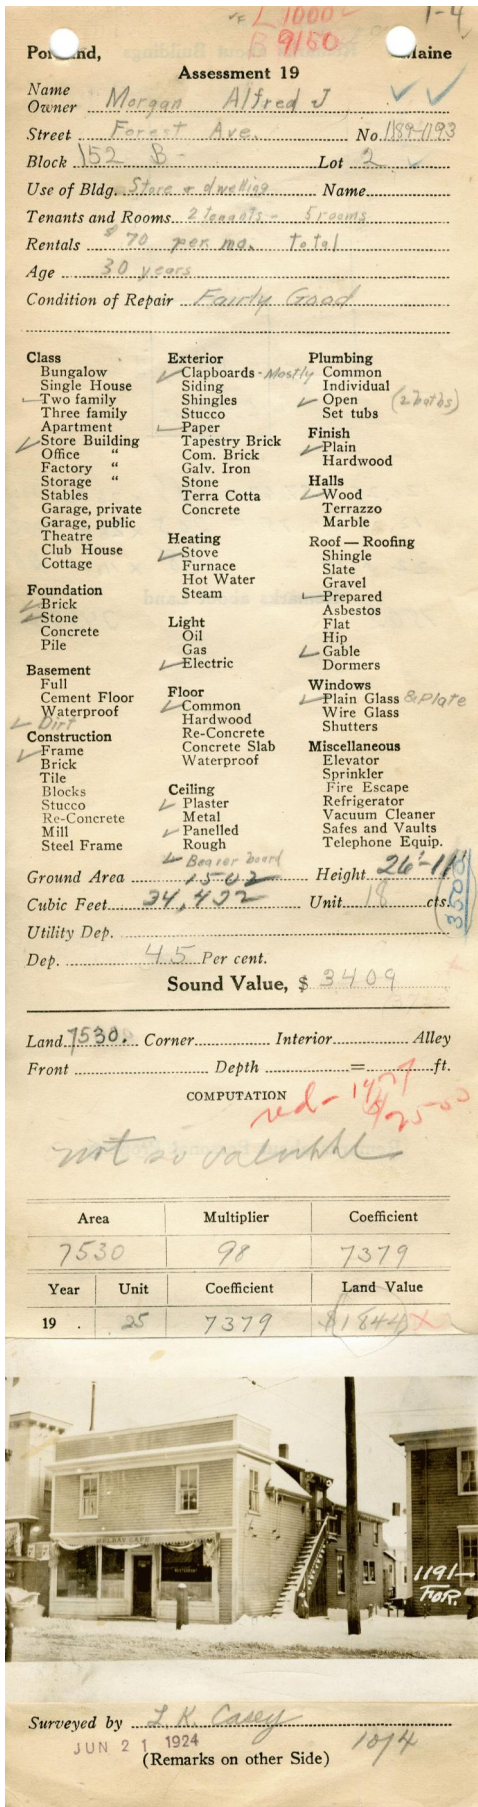 L 1000-
B 9150
1-4
Portland, Maine
Assessment 19
Name
Owner Morgan Alfred J
Street Forest Ave. No 1189-1193
Block 152 B - Lot 2
Use of Bldg. Store & dwelling Name
Tenants and Rooms 2 tenants - 5 rooms
Rentals $70 per mo. total
Age 30 years
Condition of Repair Fairly Good
Class
Bungalow
Single House
Two family
Three family
Apartment
Store Building
Office "
Factory "
Storage "
Stables
Garage, private
Garage, public
Theatre
Club House
Cottage
Foundation
Brick
Stone
Concrete
Pile
Basement
Full
Cement Floor
Waterproof
Dirt
Construction
Frame
Brick
Tile
Blocks
Stucco
Re-Concrete
Mill
Steel Frame
Exterior
Clapboards - Mostly
Siding
Shingles
Stucco
Paper
Tapestry Brick
Com. Brick
Galv. Iron
Stone
Terra Cotta
Concrete
Heating
Stove
Furnace
Hot Water
Steam
Light
Oil
Gas
Electric
Floor
Common
Hardwood
Re-Concrete
Concrete Slab
Waterproof
Ceiling
Plaster
Metal
Panelled
Rough
Beaver board
Plumbing
Common
Individual
Open (2 baths)
Set tubs
Finish
Plain
Hardwood
Halls
Wood
Terrazzo
Marble
Roof — Roofing
Shingle
Slate
Gravel
Prepared
Asbestos
Flat
Hip
Gable
Dormers
Windows
Plain Glass & Plate
Wire Glass
Shutters
Miscellaneous
Elevator
Sprinkler
Fire Escape
Refrigerator
Vacuum Cleaner
Safes and Vaults
Telephone Equip.
Ground Area 1502 Height 26'-11"
Cubic Feet 34,432 Unit 18 cts.
3500
Utility Dep.
Dep. 45 Per cent.
Sound Value, $ 3409
Land 7530. Corner Interior Alley
Front Depth = ft.
COMPUTATION
red-
not so valuable
Area Multiplier Coefficient
7530 98 7379
Year Unit Coefficient Land Value
19 . 25 7379 $1844
1191-
FOR.
Surveyed by L. K. Casey
JUN 21 1924
10/4
(Remarks on other Side)